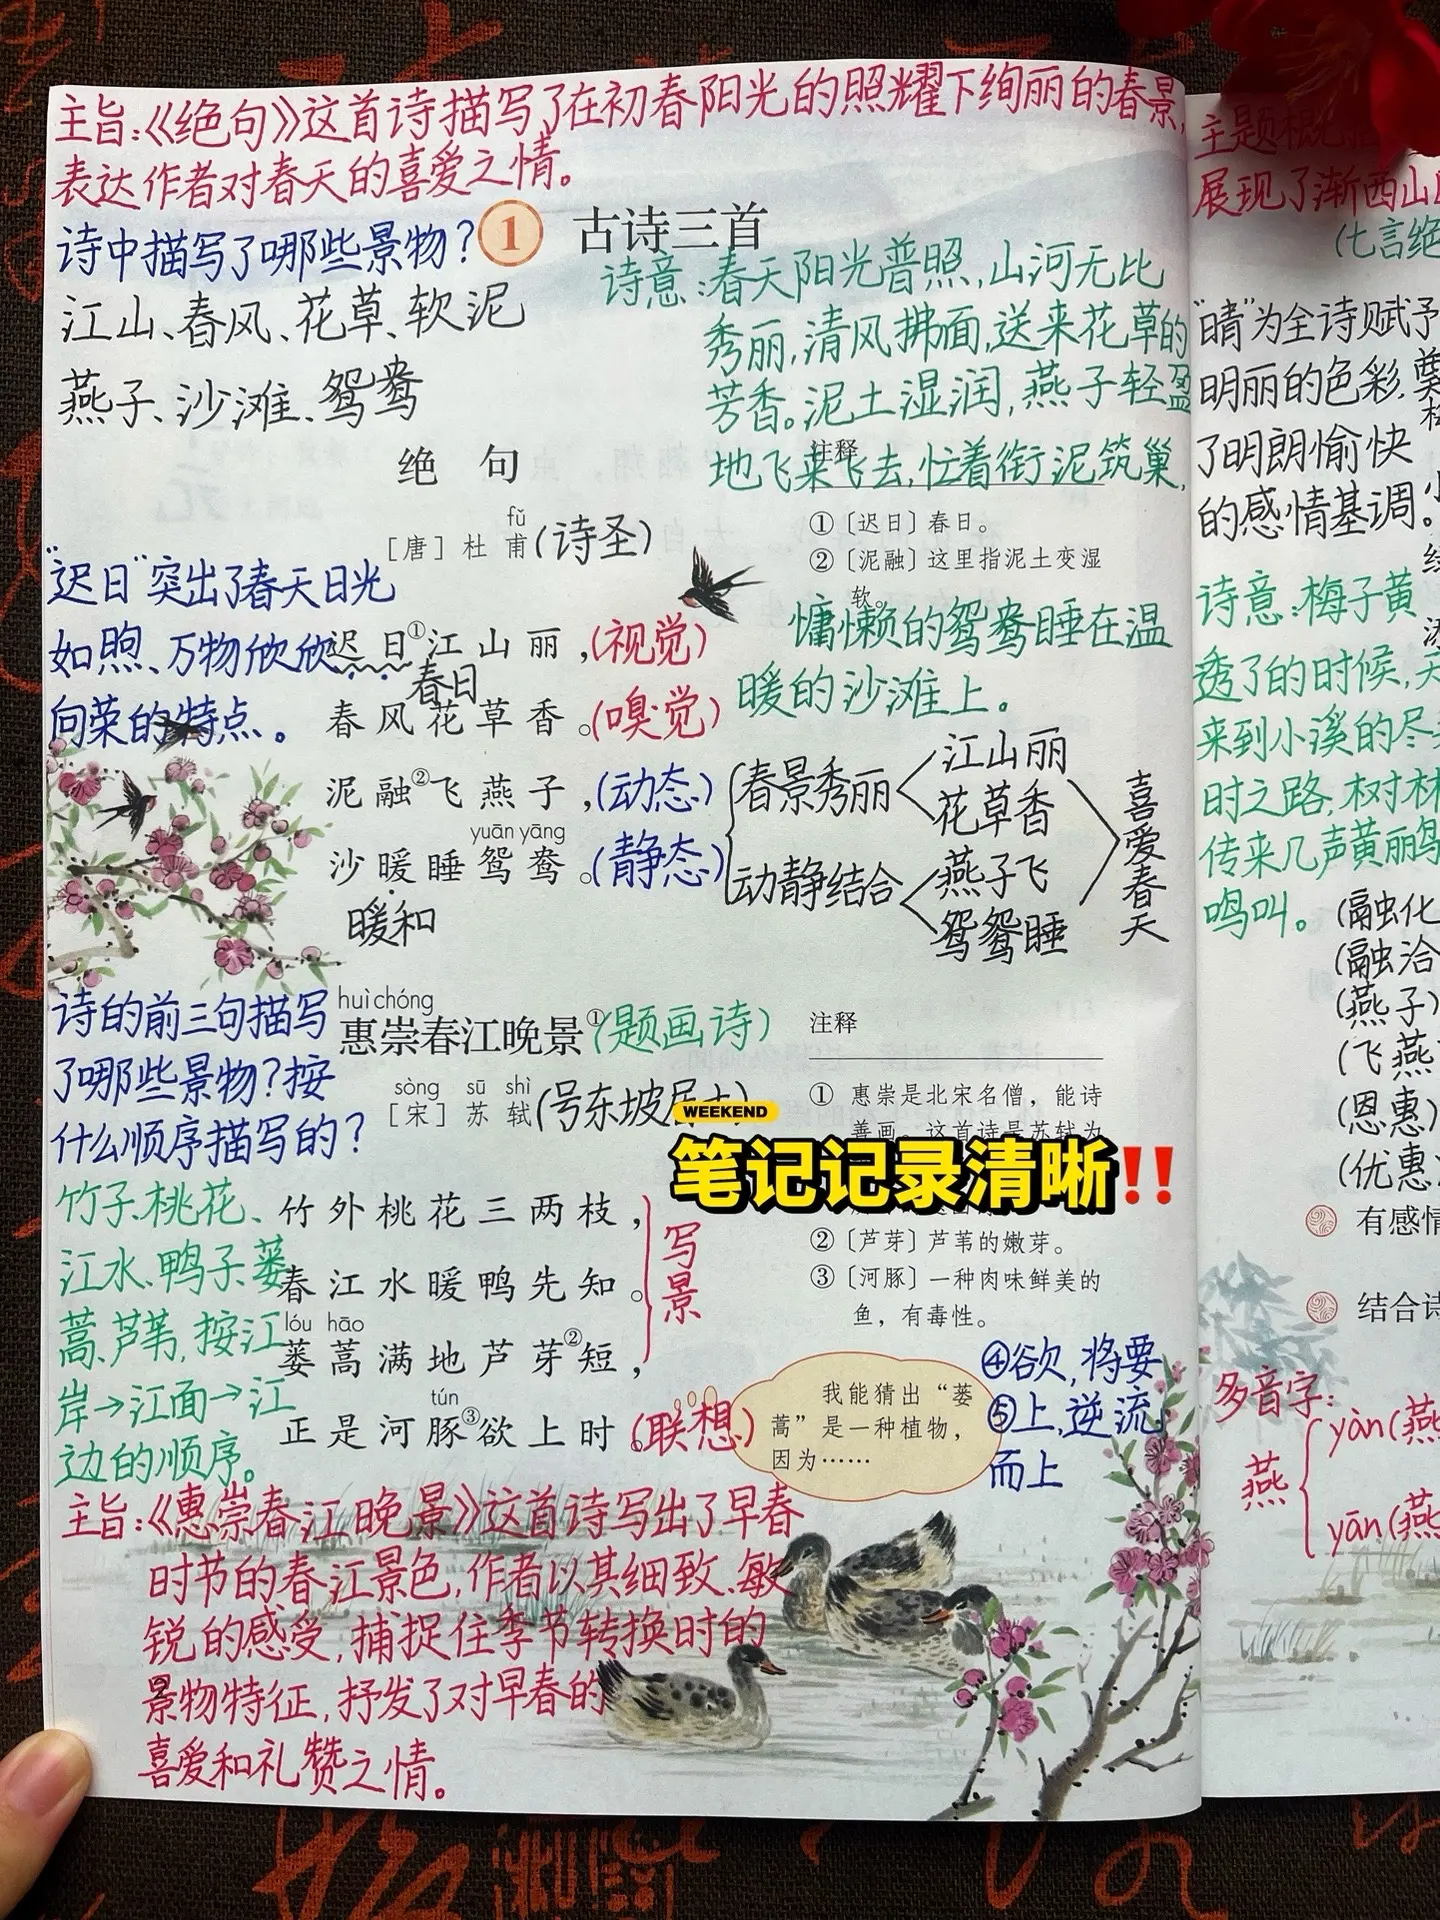 主旨:《绝句》这首诗描写了在初春阳光的照耀下绚丽的春景,
表达作者对春天的喜爱之情。
诗中描写了哪些景物?
1 古诗三首
江山、春风、花草、软泥
燕子、沙滩、鸳鸯
诗意:春天阳光普照,山河无比
秀丽,清风拂面,送来花草的
芳香。泥土湿润,燕子轻盈
地飞来飞去,忙着衔泥筑巢,
慵懒的鸳鸯睡在温
暖的沙滩上。
绝 句
fǔ
[唐] 杜 甫(诗圣)
注释
①〔迟日〕春日。
②〔泥融〕这里指泥土变湿
软。
"迟日"突出了春天日光
如煦、万物欣欣
向荣的特点。
迟日①江山丽,(视觉)
春日
春风花草香。(嗅觉)
泥融②飞燕子,(动态)
yuān yāng
沙暖睡鸳鸯。(静态)
暖和
春景秀丽
江山丽
花草香
动静结合
燕子飞
鸳鸳睡
喜爱春天
诗的前三句描写
了哪些景物?按
什么顺序描写的?
huì chóng
惠崇春江晚景①(题画诗)
sòng sū shì
[宋] 苏 轼(号东坡居士)
注释
① 惠崇是北宋名僧,能诗
善画。这首诗是苏轼为
WEEKEND
笔记记录清晰!!
②〔芦芽〕芦苇的嫩芽。
③〔河豚〕一种肉味鲜美的
鱼,有毒性。
④欲,将要
⑤上,逆流
而上
竹子、桃花、
江水、鸭子、蒌
蒿、芦苇,按江
岸→江面→江
边的顺序。
竹外桃花三两枝,
春江水暖鸭先知。
lóu hāo
蒌蒿满地芦芽②短,
写景
tún
正是河豚③欲上时。(联想)
我能猜出“蒌
蒿”是一种植物,
因为……
主旨:《惠崇春江晚景》这首诗写出了早春
时节的春江景色,作者以其细致、敏
锐的感受,捕捉住季节转换时的
景物特征,抒发了对早春的
喜爱和礼赞之情。
2
主题概
展现了浙西山
(七言绝
"晴"为全诗赋予
明丽的色彩,
了明朗愉快
的感情基调。
诗意:梅子黄
透了的时候,天
来到小溪的尽
时之路,树林
传来几声黄鹂
鸣叫。
(融化
(融洽
(燕子)
(飞燕
(恩惠)
(优惠)
有感情
结合诗
多音字:
燕
yàn(燕
yān(燕